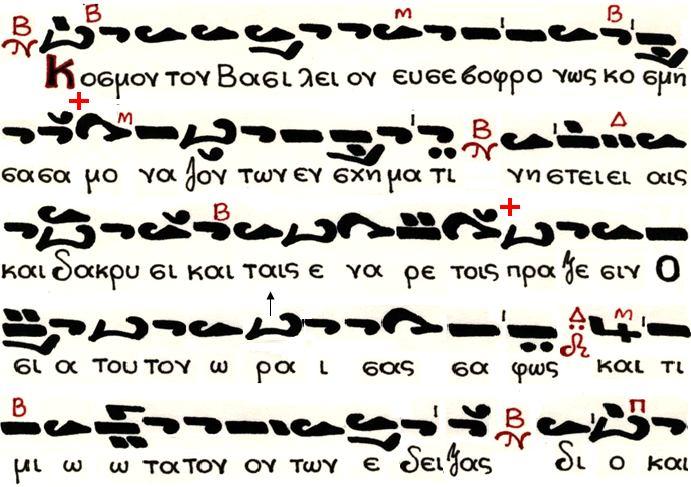 Κοσμου τον Βασι λει ον ευσε βοφρο νως κο σμη
σασα μο να ζον των εν σχη μα τι νη στειει αις
και δακρυ σι και ταις ε να ρε τοις πρα ξε σιν Ο
σι α τουτον ω ρα ι σας σα φως και τι
μι ω ω τατον ον των ε δει ξας δι ο και